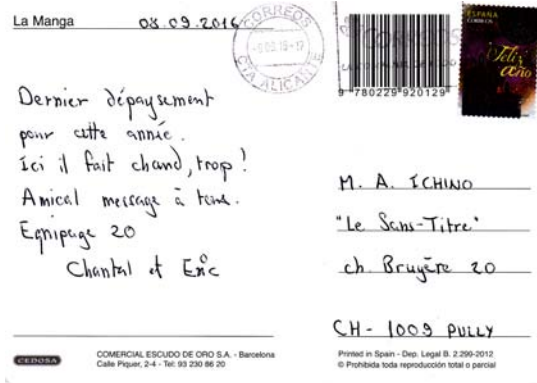 La Manga 08.09.2016
CORREOS
CTA ALICANTE
ESPAÑA
CORREOS
Feliz
año
9 780229 920129
Dernier dépaysement
pour cette année.
Ici il fait chaud, trop !
Amical message à tous.
Equipage 20
Chantal et Eric
M. A. ICHINO
"Le Sans-Titre"
ch. Bruyère 20
CH - 1009 PULLY
CEDOSA
COMERCIAL ESCUDO DE ORO S.A. - Barcelona
Calle Piquer, 2-4 - Tel: 93 230 86 20
Printed in Spain - Dep. Legal B. 2.290-2012
© Prohibida toda reproducción total o parcial